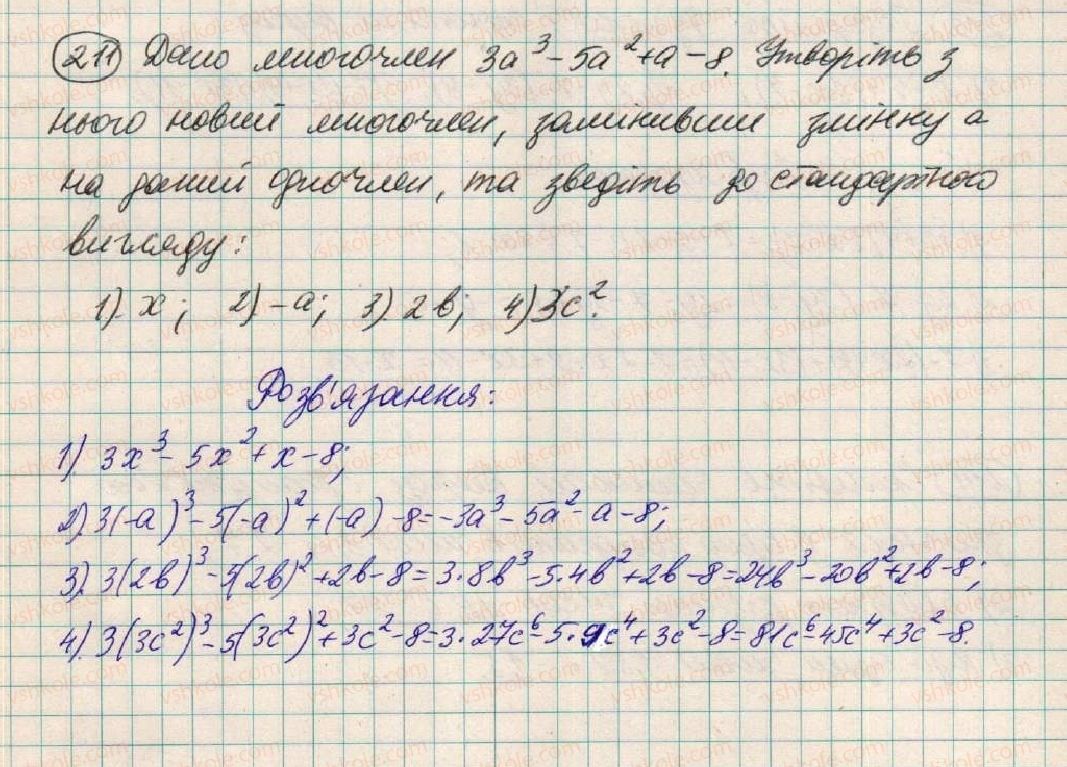 211 Дано многочлен 3a³ - 5a² + a - 8. Утворіть з
нього новий многочлен, замінивши змінну a
на даний одночлен, та зведіть до стандартного
вигляду:
1) x; 2) -a; 3) 2b; 4) 3c².
Розв'язання:
1) 3x³ - 5x² + x - 8;
2) 3(-a)³ - 5(-a)² + (-a) - 8 = -3a³ - 5a² - a - 8;
3) 3(2b)³ - 5(2b)² + 2b - 8 = 3·8b³ - 5·4b² + 2b - 8 = 24b³ - 20b² + 2b - 8;
4) 3(3c²)³ - 5(3c²)² + 3c² - 8 = 3·27c⁶ - 5·9c⁴ + 3c² - 8 = 81c⁶ - 45c⁴ + 3c² - 8.